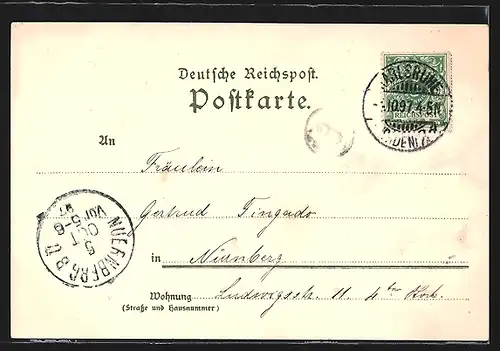 Deutsche Reichspost.
Postkarte.
KARLSRUHE
10.97. 4-5N
(BADEN)
REICHSPOST
An
Fräulein
Gertrud Tingado
in Nürnberg
Wohnung Ludwigstr. 11. 4ter Stock.
(Straße und Hausnummer)
NUERNBERG B.O
5
OCT
Vor 5-6
97